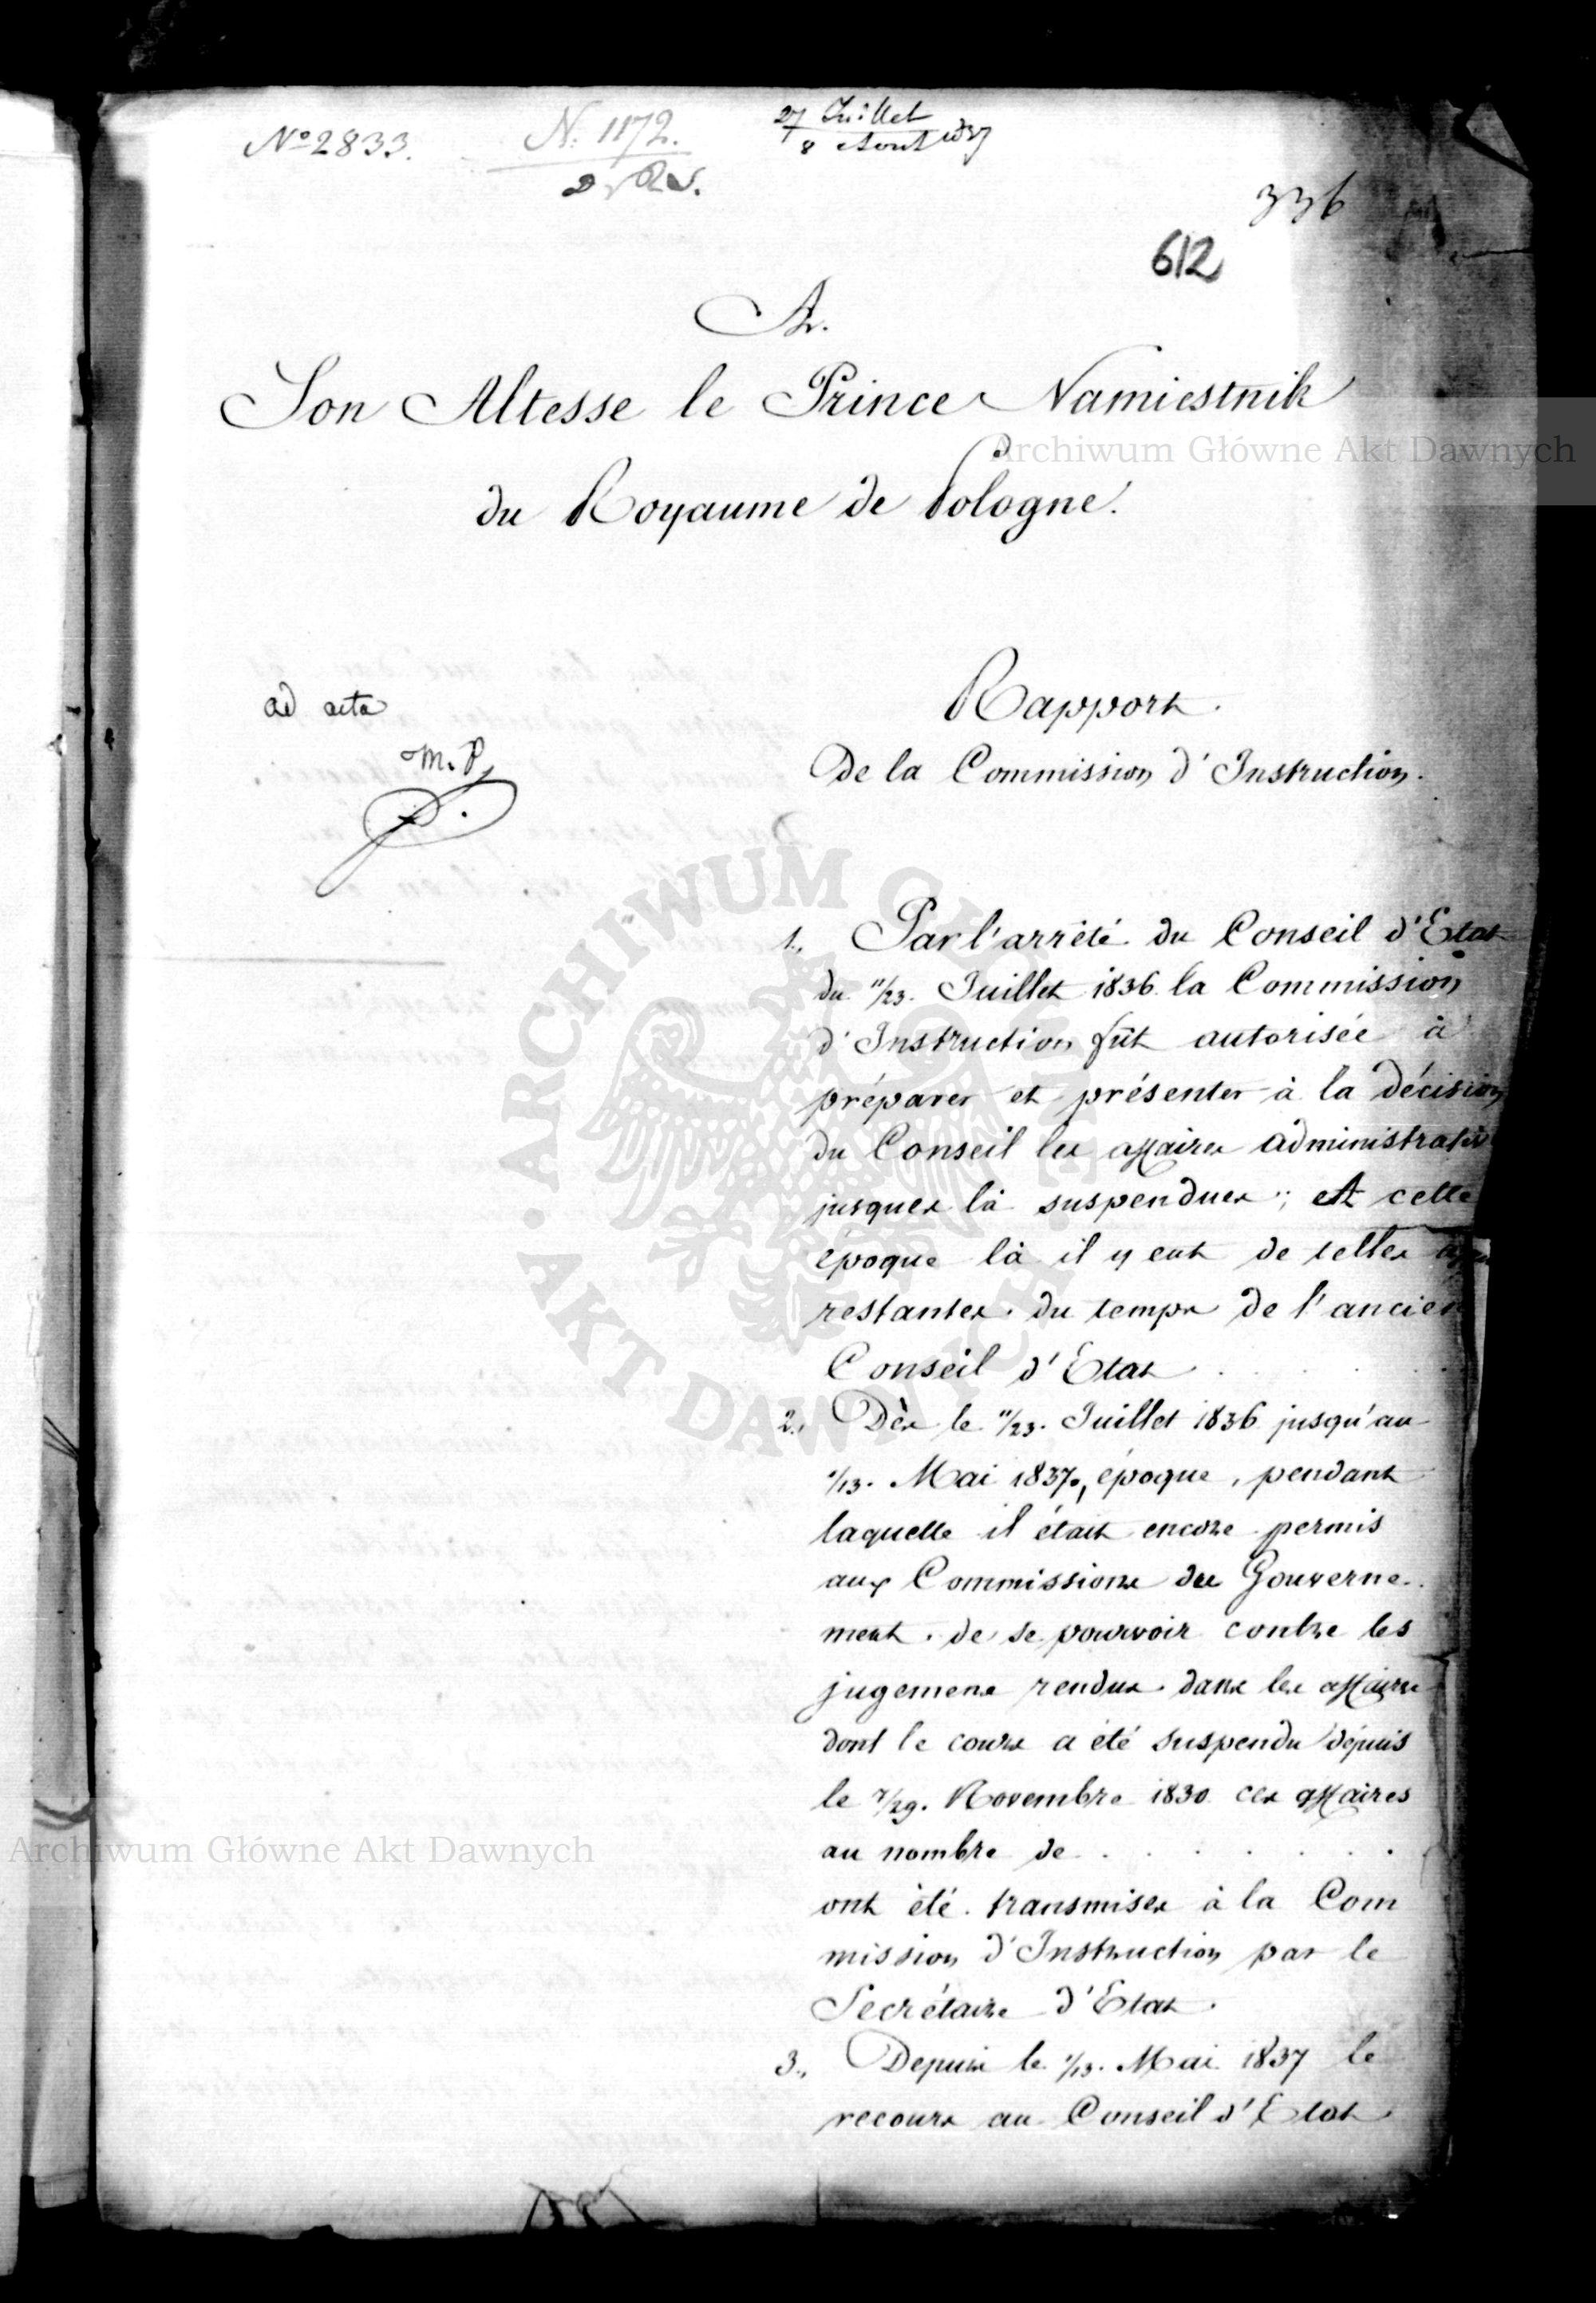 No 2833.
N. 1172.
27 Juillet
8 Aout 1837
336
612
A.
Son Altesse le Prince Namiestnik
du Royaume de Pologne.
ad acta
m. P.
Rapport.
De la Commission d'Instruction.
1., Par l'arrêté du Conseil d'Etat
du 11/23. Juillet 1836 la Commission
d'Instruction fût autorisée à
préparer et présenter à la décision
du Conseil les affaires administrativ
jusques là suspendues; A cette
époque là il y eut de telles
restantes du temps de l'ancien
Conseil d'Etat . . . . .
2., Dès le 11/23. Juillet 1836 jusqu'au
1/13. Mai 1837, époque, pendant
laquelle il était encore permis
aux Commissions du Gouverne-
ment de se pourvoir contre les
jugemens rendus dans les affaires
dont le cours a été suspendu dépuis
le 17/29. Novembre 1830 ces affaires
au nombre de . . . . . . .
ont été transmises à la Com
mission d'Instruction par le
Secrétaire d'Etat.
3., Depuis le 1/13. Mai 1837 le
recours au Conseil d'Etat
Archiwum Główne Akt Dawnych
Archiwum Główne Akt Dawnych
ARCHIWUM GŁÓWNE · AKT DAWNYCH ·